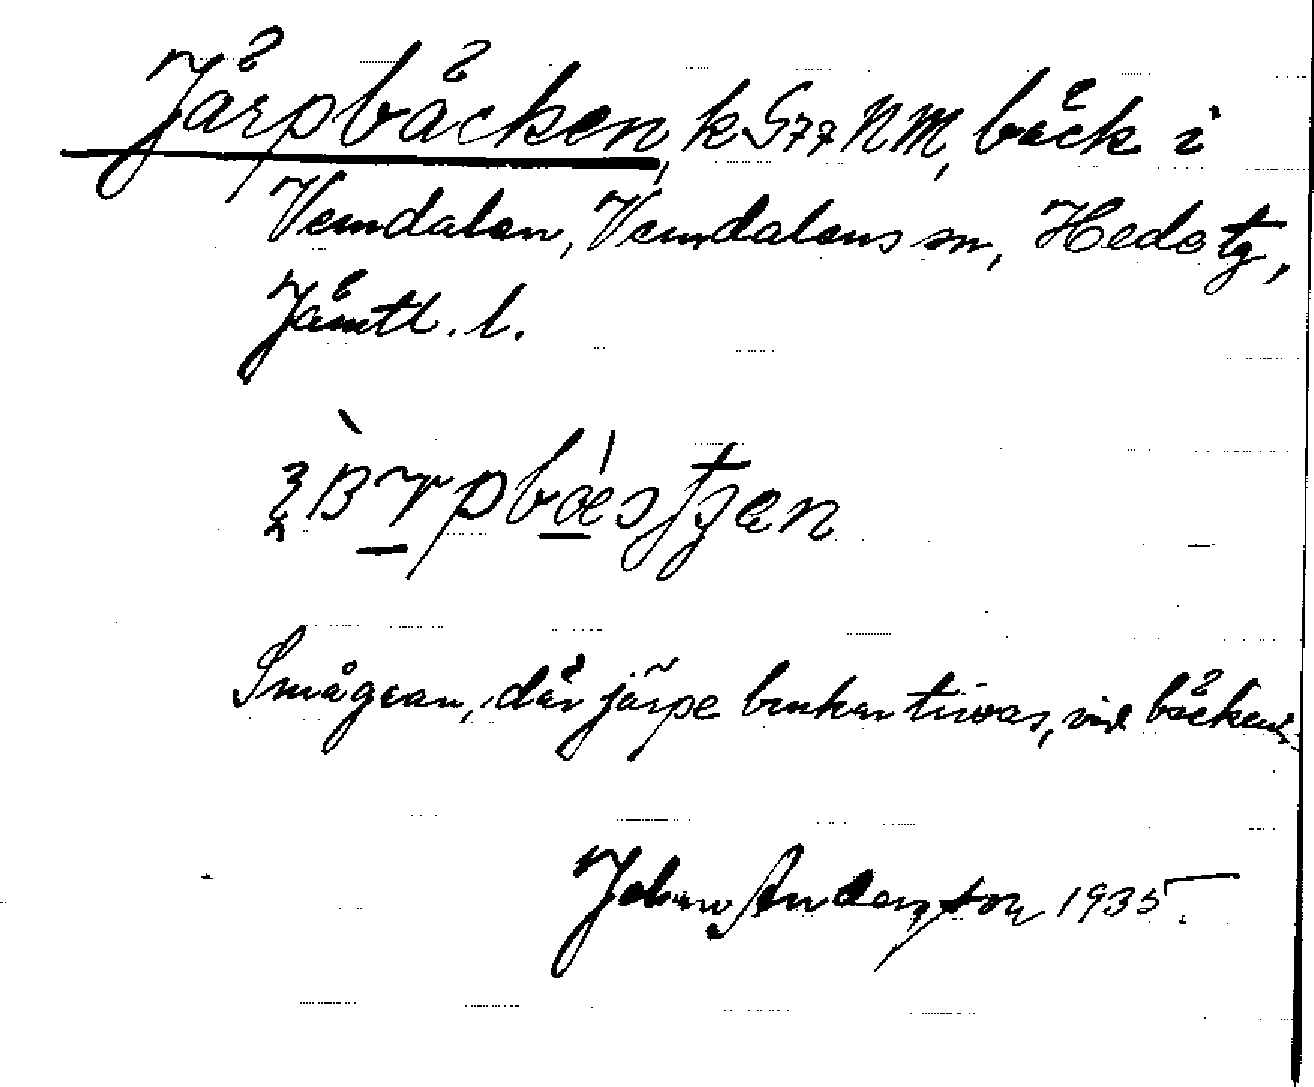 Järpbäcken, k S77 NM, bäck i
Vemdalen, Vemdalens sn, Hede tg,
Jämtl. l.
Smågran, där järpe brukar trivas, vid bäcken.
Johan Anderzson 1935.